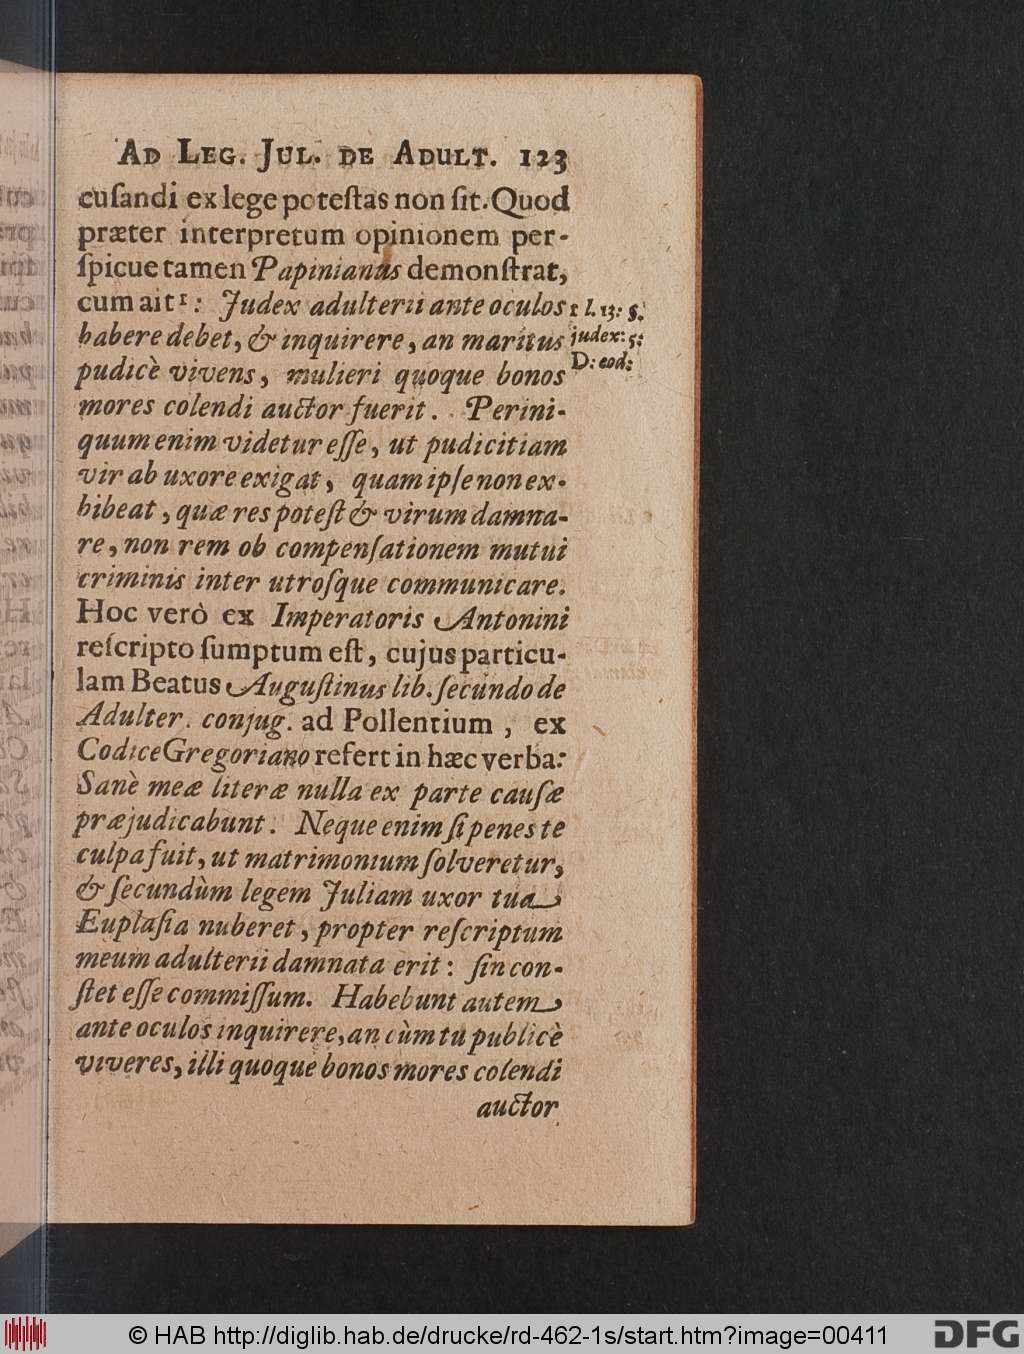 AD LEG. JUL. DE ADULT. 123
cuſandi ex lege poteſtas non ſit. Quod
præter interpretum opinionem per-
ſpicue tamen Papinianus demonſtrat,
cum ait¹: Judex adulterii ante oculos
habere debet, & inquirere, an maritus
pudicè vivens, mulieri quoque bonos
mores colendi auctor fuerit. Perini-
quum enim videtur eſſe, ut pudicitiam
vir ab uxore exigat, quam ipſe non ex-
hibeat, quæ res poteſt & virum damna-
re, non rem ob compenſationem mutui
criminis inter utroſque communicare.
Hoc verò ex Imperatoris Antonini
reſcripto ſumptum eſt, cujus particu-
lam Beatus Auguſtinus lib. ſecundo de
Adulter. conjug. ad Pollentium, ex
Codice Gregoriano refert in hæc verba:
Sanè meæ literæ nulla ex parte cauſæ
præjudicabunt. Neque enim ſi penes te
culpa fuit, ut matrimonium ſolveretur,
& ſecundùm legem Juliam uxor tua
Euplaſia nuberet, propter reſcriptum
meum adulterii damnata erit: ſin con-
ſtet eſſe commiſſum. Habebunt autem
ante oculos inquirere, an cùm tu publicè
viveres, illi quoque bonos mores colendi
auctor
1 l. 13: §.
judex: 5:
D: eod:
© HAB http://diglib.hab.de/drucke/rd-462-1s/start.htm?image=00411
DFG